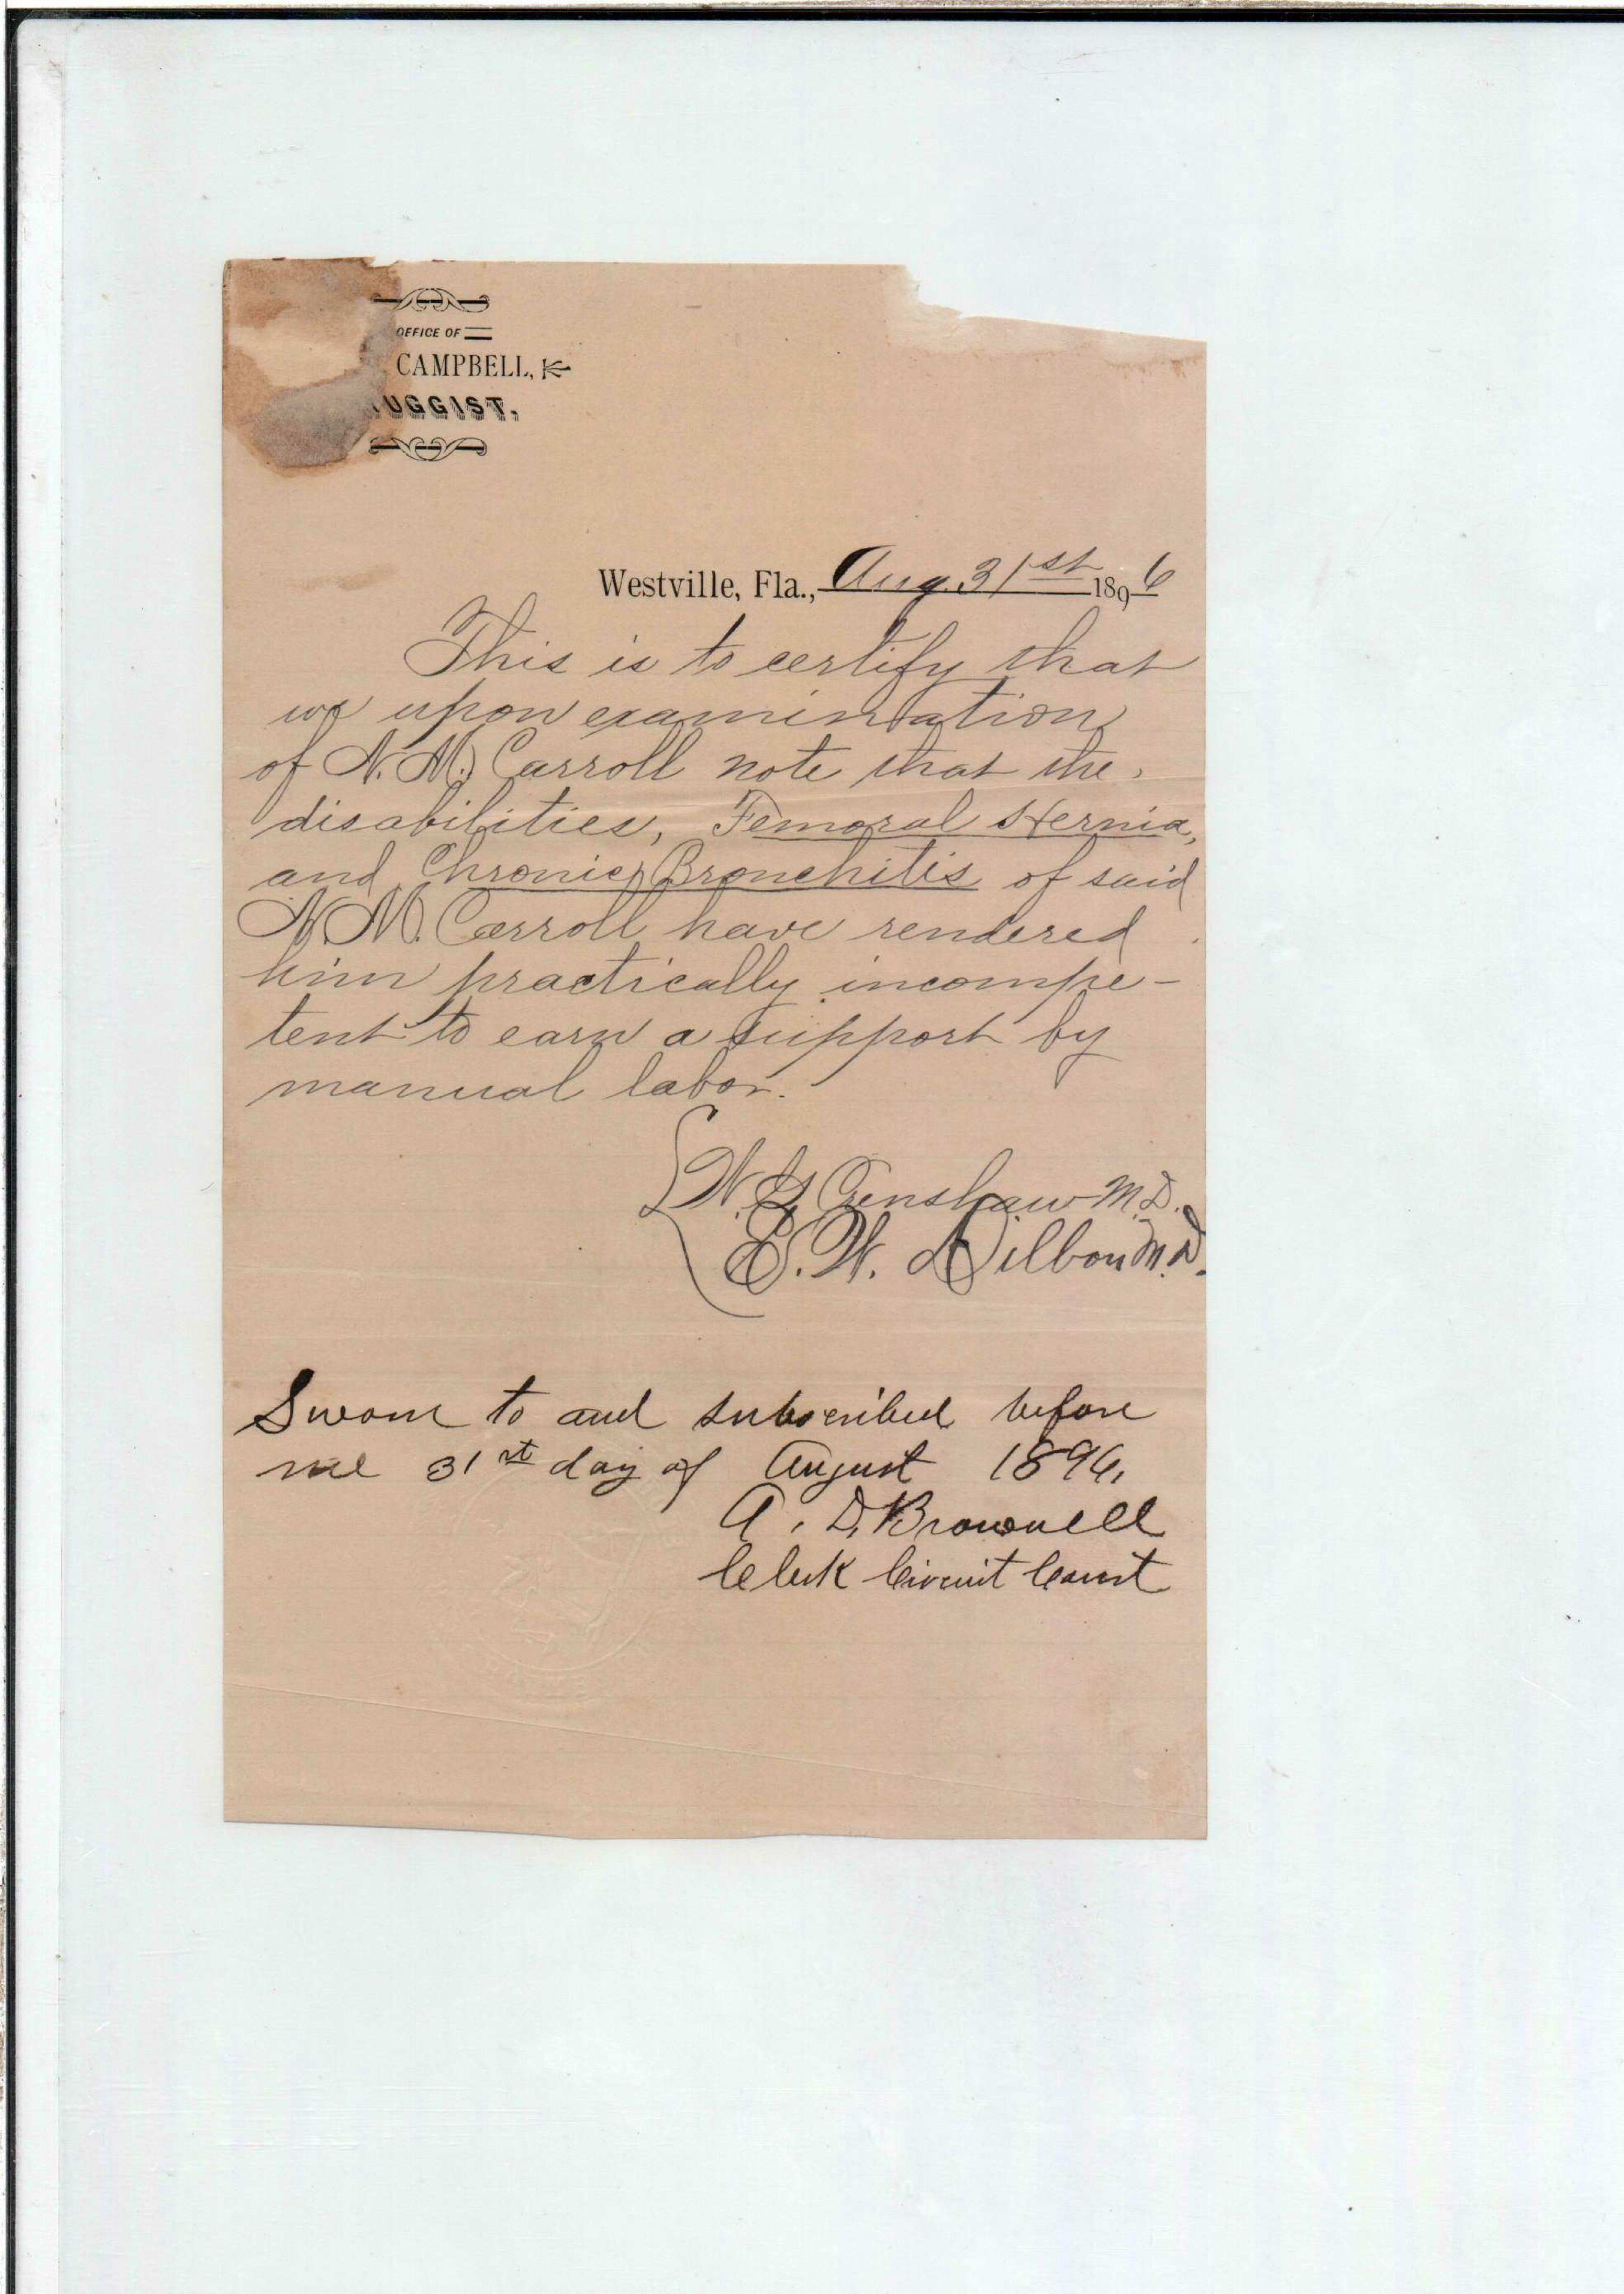 OFFICE OF
CAMPBELL,
UGGIST.
Westville, Fla., Aug. 31st 1896
This is to certify that
we upon examination
of N. M. Carroll note that the
disabilities, Femoral Hernia,
and Chronic Bronchitis of said
N. M. Carroll have rendered
him practically incompe-
tent to earn a support by
manual labor.
W. G. Crenshaw M.D.
E. W. M.D.
Sworn to and subscribed before
me 31st day of August 1896,
A. D. Brownell
Clerk Circuit Court